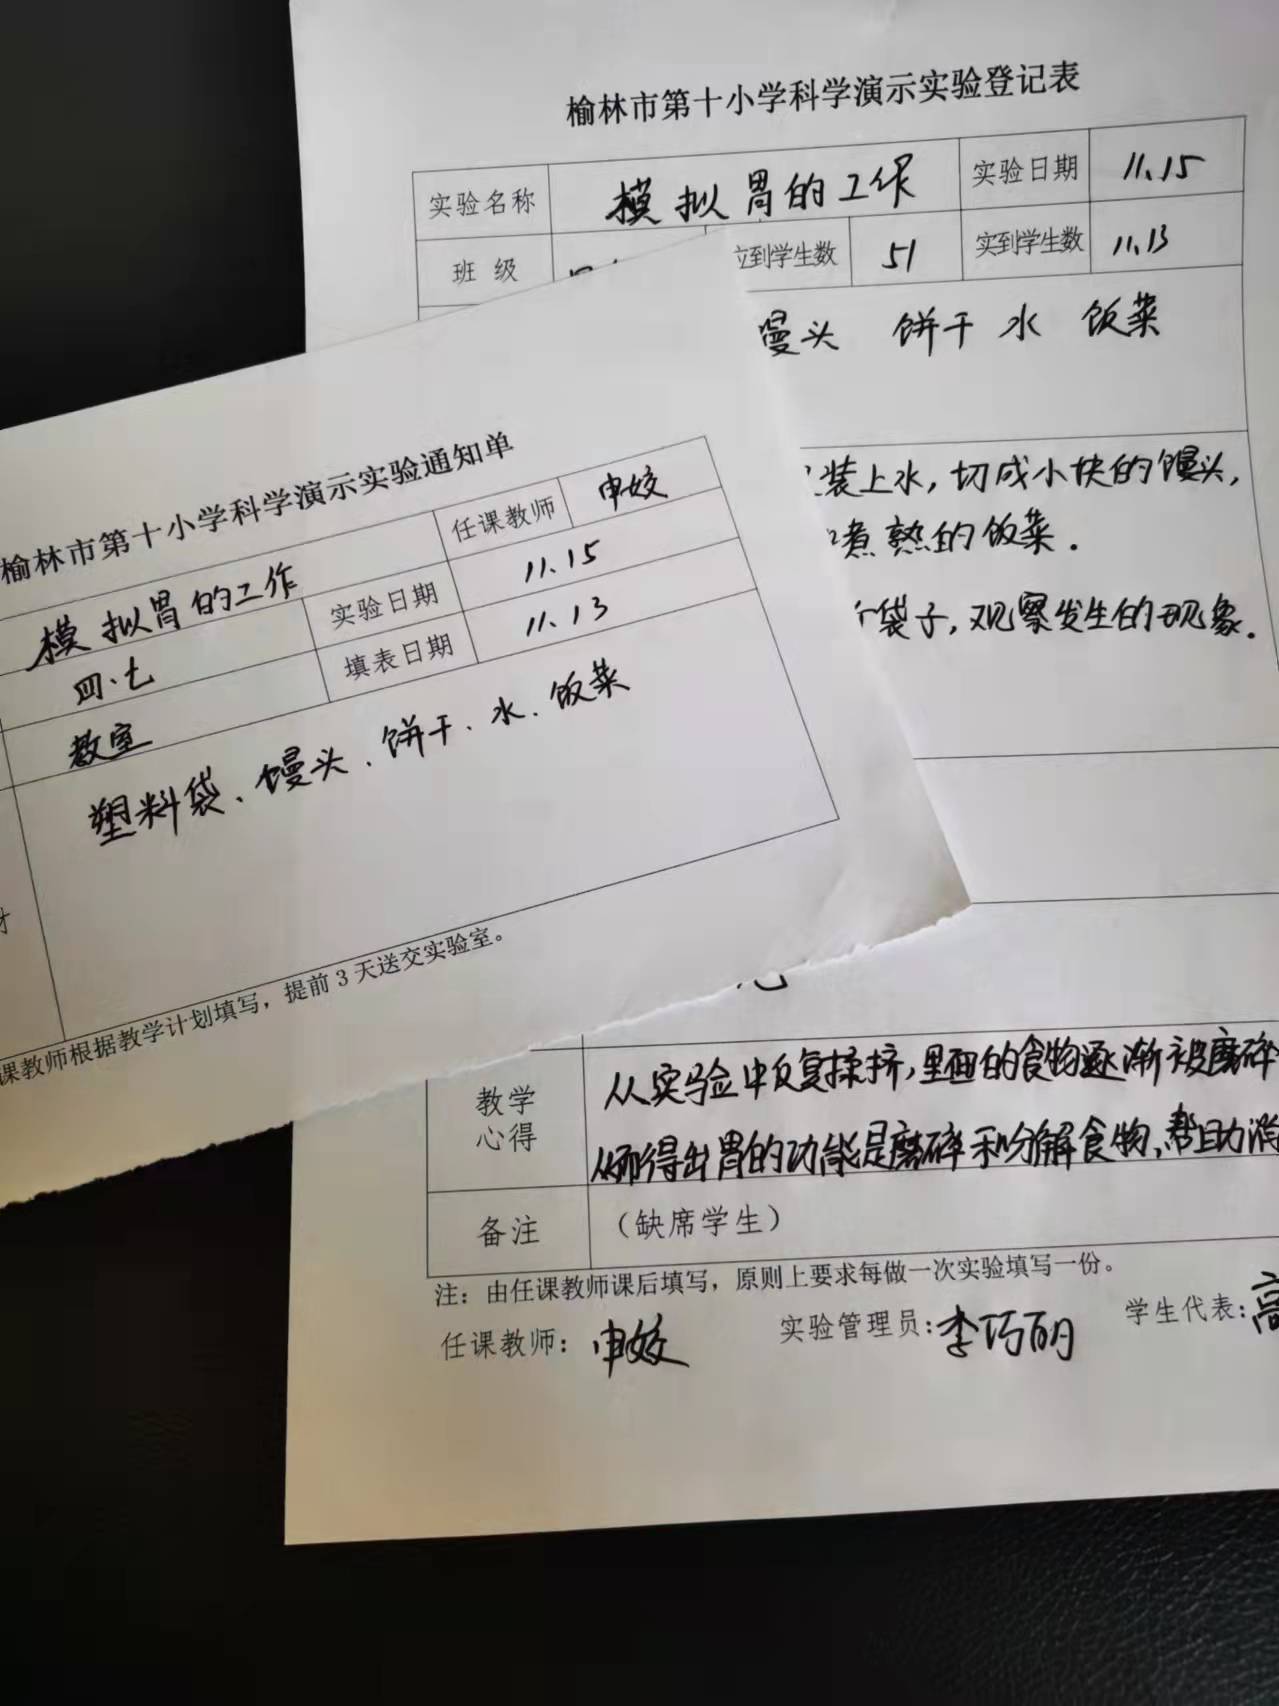 榆林市第十小学科学演示实验登记表
实验名称 模拟胃的工作 实验日期 11.15
班 级 到学生数 51 实到学生数 11.13
馒头 饼干 水 饭菜
装上水,切成小块的馒头,
煮熟的饭菜.
袋子,观察发生的现象.
教学心得 从实验中反复揉挤,里面的食物逐渐被磨碎
从而得出胃的功能是磨碎和分解食物,帮助消
备注 (缺席学生)
注:由任课教师课后填写,原则上要求每做一次实验填写一份。
任课教师:申姣 实验管理员:李巧丽 学生代表:高
榆林市第十小学科学演示实验通知单
模拟胃的工作 任课教师 申姣
四.七 实验日期 11.15
教室 填表日期 11.13
塑料袋、馒头、饼干、水、饭菜
课教师根据教学计划填写,提前3天送交实验室。